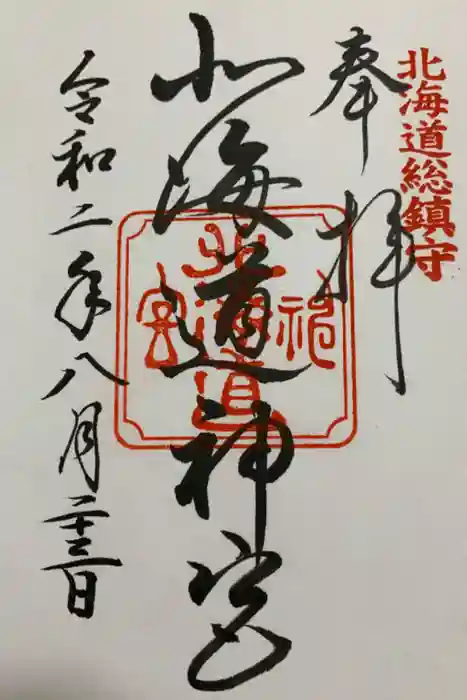 北海道総鎮守
奉拝
北海道神宮
北海道神宮
令和二年八月二十三日